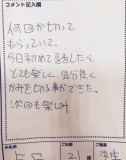 コメント記入欄
何回か切って
もらっていて、
今日初めて話をしたら、
とても楽しく、気分良く
かみを切る事ができた。
次回も楽しみ